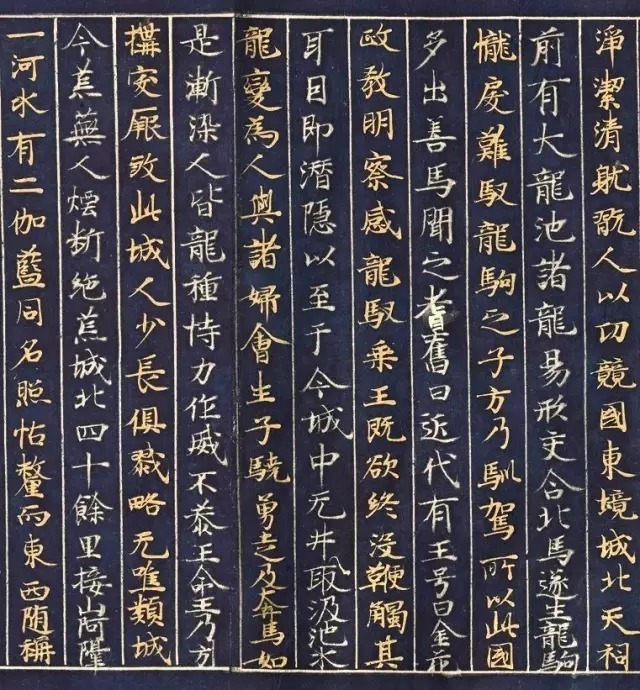 淨潔清躭翫人以功競國東境城北天祠
前有大龍池諸龍易形交合北馬遂生龍駒
㦕戾難馭龍駒之子方乃馴駕所以此國
多出善馬聞之耆舊曰近代有王号曰金花
政教明察感龍馭乘王既欲終沒鞭觸其
耳目即潛隱以至于今城中无井取汲池水
龍變為人與諸婦會生子驍勇走及奔馬如
是漸染人皆龍種恃力作威不恭王命王乃方
搆突厥致此城人少長俱戮略无噍類城
今荒蕪人煙斷絕荒城北四十餘里接山阿隔
一河水有二伽藍同名照怙釐而東西随稱